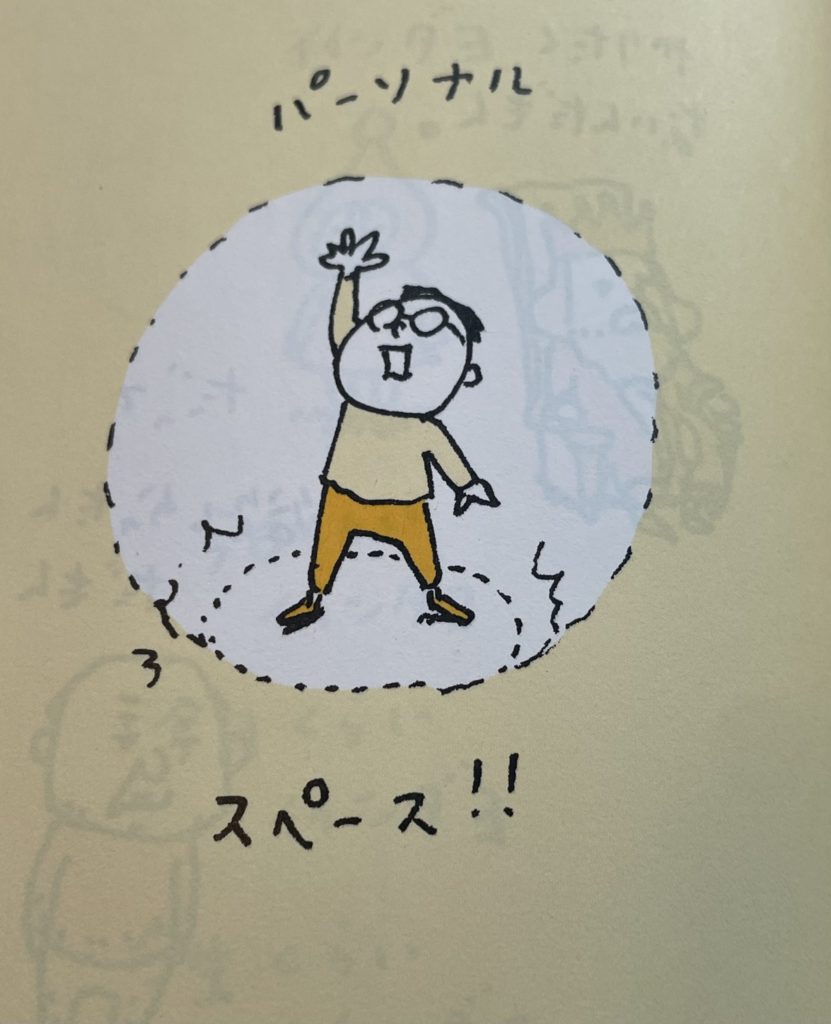 パーソナル
スペース!!